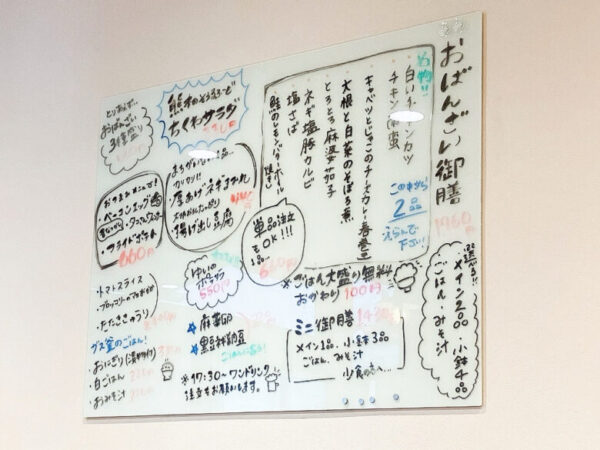 おばんざい御膳
1760円
名物!!
白いチキンカツ
チキン南蛮
キャベツとじゃこのチーズカレー春巻
大根と白菜のそぼろ煮
とろとろ麻婆茄子
ネギ塩豚カルビ
塩さば
鮭のレモンバターホイル焼き
この中から
2品
えらんで
下さい!
選べる!!
メイン2品 小鉢4品
ごはん、みそ汁
単品注文
もOK!!!
1品
※ごはん大盛り無料
おかわり 100円
ミニ御膳 1430
メイン1品、小鉢3品
ごはん、みそ汁
少食の方へ…
とりあえず…
おばんざい
3種盛り
ちくわサラダ
カリカリ!!
厚あげネギまみれ
揚げ出し豆腐
おつまみメニュー
・ベーコンエッグ
・フライドポテト
660円
・トマトスライス
・たたききゅうり
ガス釜のごはん!
・おにぎり
・白ごはん
・おみそ汁
ゆいの
ポテサラ
550円
麻薬卵
黒胡椒枝豆
※17:30〜ワンドリンク
注文をお願いします。